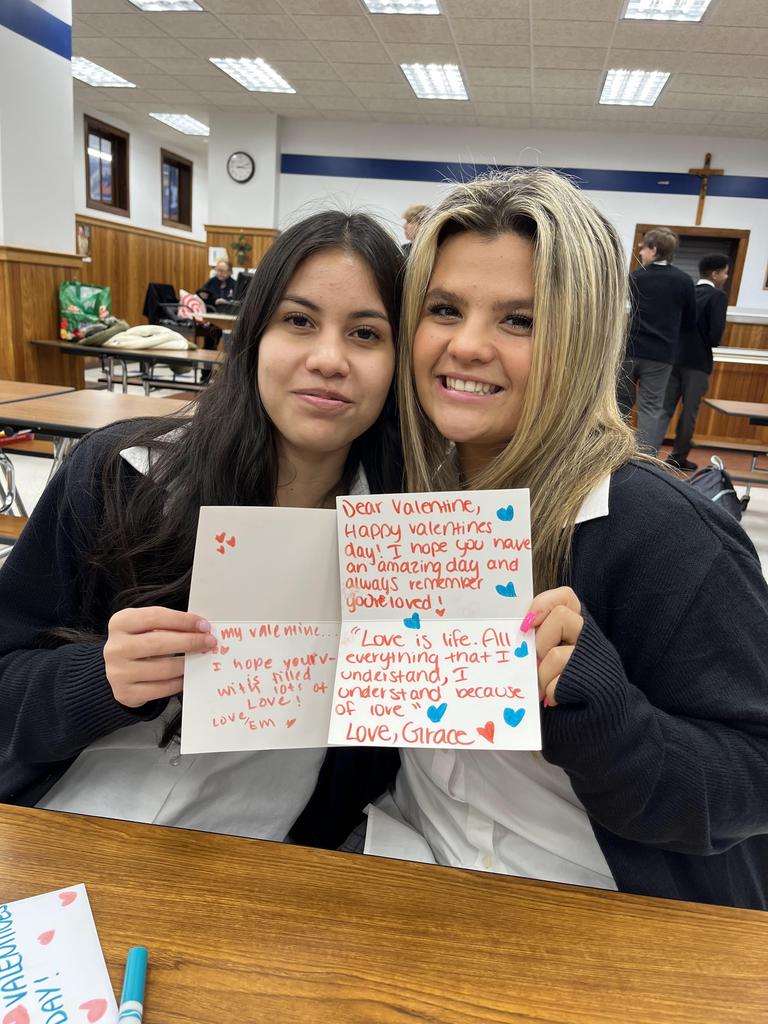 my valentine...
I hope your v-
is filled
with lots of
LOVE!
LOVE, EM
Dear Valentine,
Happy valentines
day! I hope you have
an amazing day and
always remember
you're loved!
"Love is life. All
everything that I
understand, I
understand because
of love"
Love, Grace
VALENTINES
DAY!